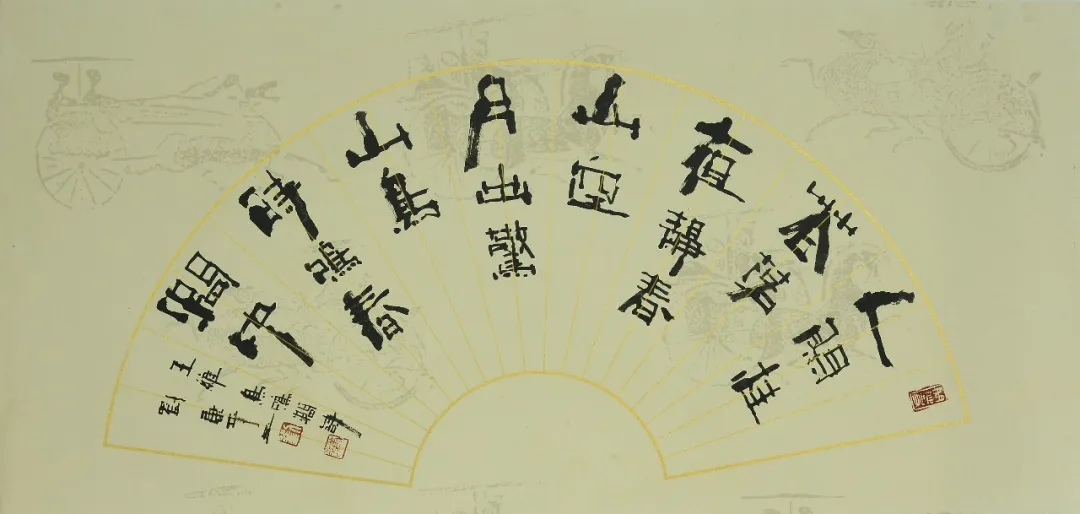 人間桂
花落
夜靜春
山空
月出驚
山鳥
時鳴春
澗中
王維鳥鳴澗詩
劉平